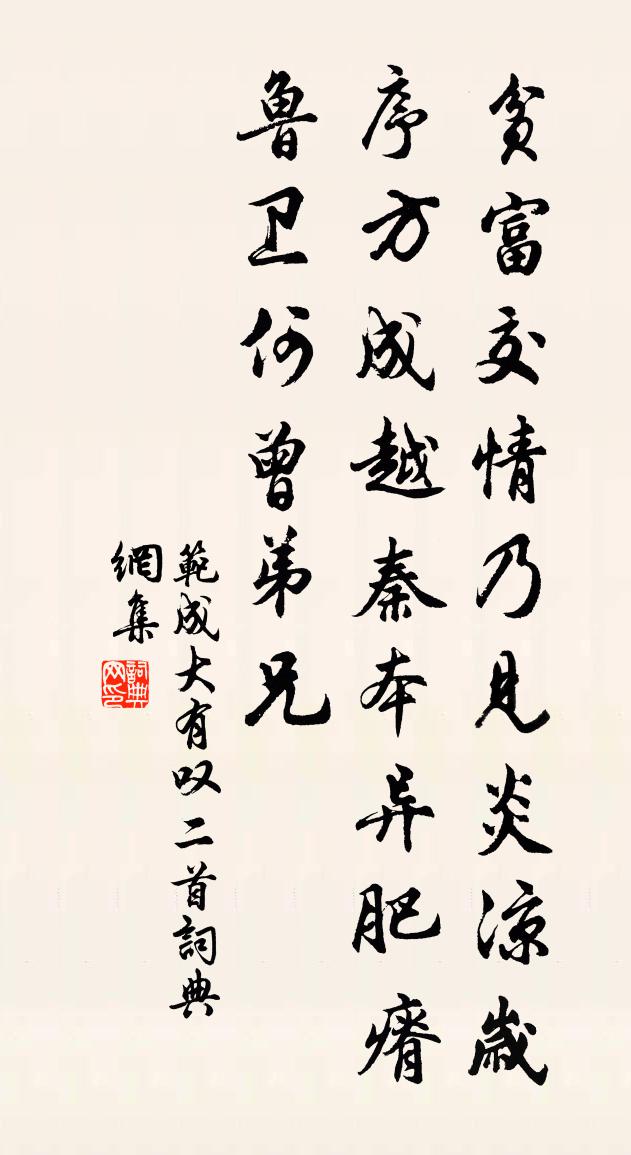 贫富交情乃见炎凉岁
序方成越秦本异肥瘠
鲁卫何曾弟兄
範成大有叹二首詞典
網集
詞典
网印